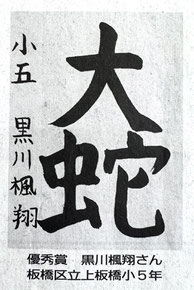 大蛇
小五 黒川楓翔
優秀賞 黒川楓翔さん
板橋区立上板橋小5年